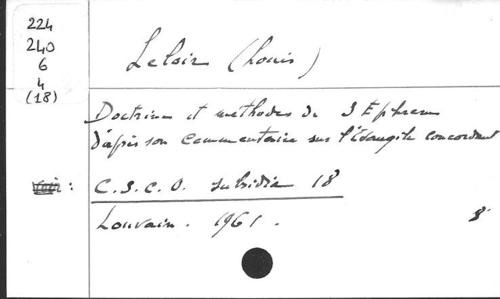 224
240
6
4
(18)
Leloir (Louis)
Doctrines et méthodes de S Ephrem
d'après son commentaire sur l'Évangile concordant
voir :
C.S.C.O. subsidia 18
Louvain . 1961 .
8°